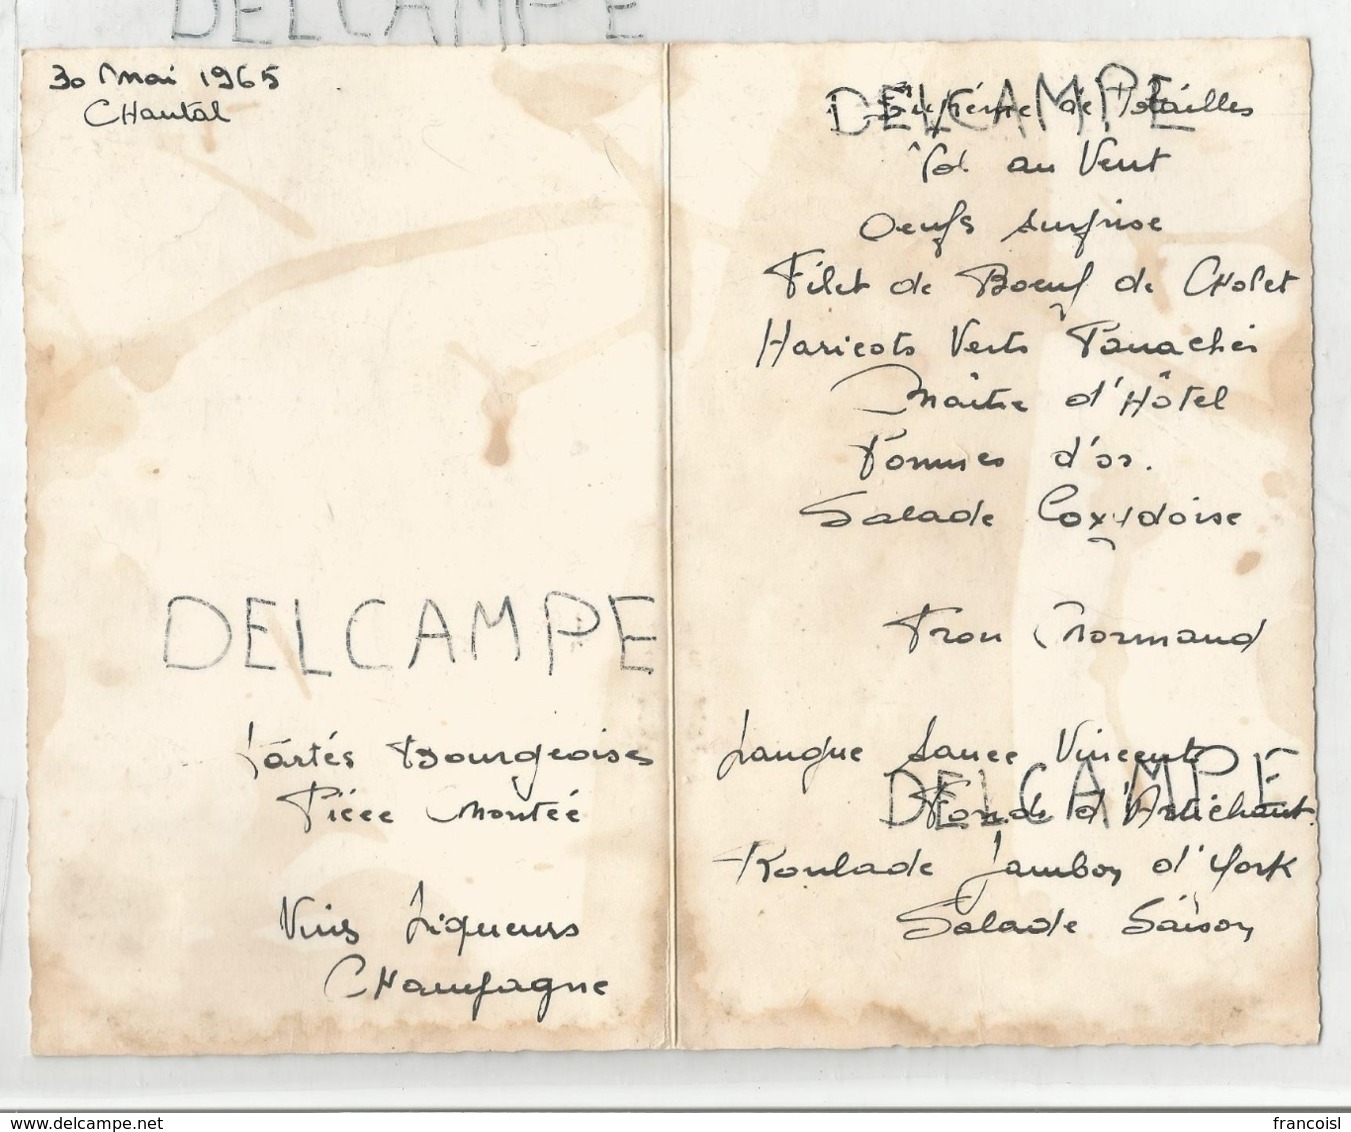 DELCAMPE
30 Mai 1965
CHantal
DELCAMPE
Tartes Bourgeoises
Pièce Montée
Vins Liqueurs
CHampagne
DELCAMPE
Suprème de Volailles
Vol au Vent
Oeufs surprise
Filet de Boeuf de CHolet
Haricots Verts Panachés
Maître d'Hôtel
Pommes d'or.
Salade Coxydoise
Trou Normand
Langue sauce Vincent
DELCAMPE
Fonds d'Artichaut.
Roulade Jambon d'York
Salade Saison
www.delcampe.net
francoisl